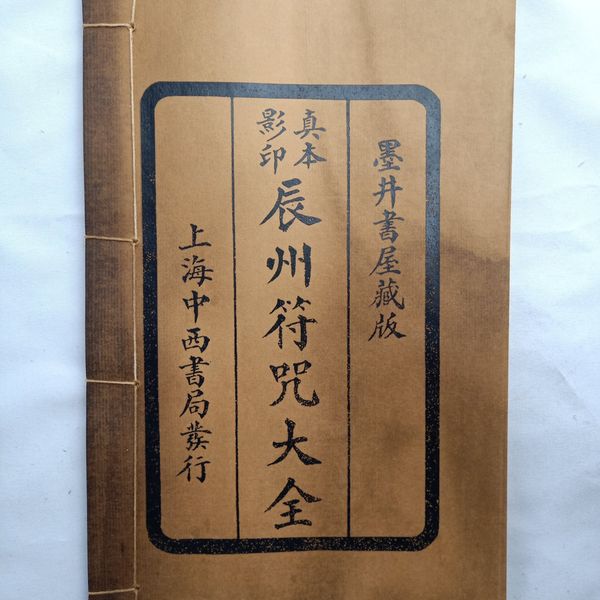 墨井書屋藏版
真本影印
辰州符咒大全
上海中西書局發行